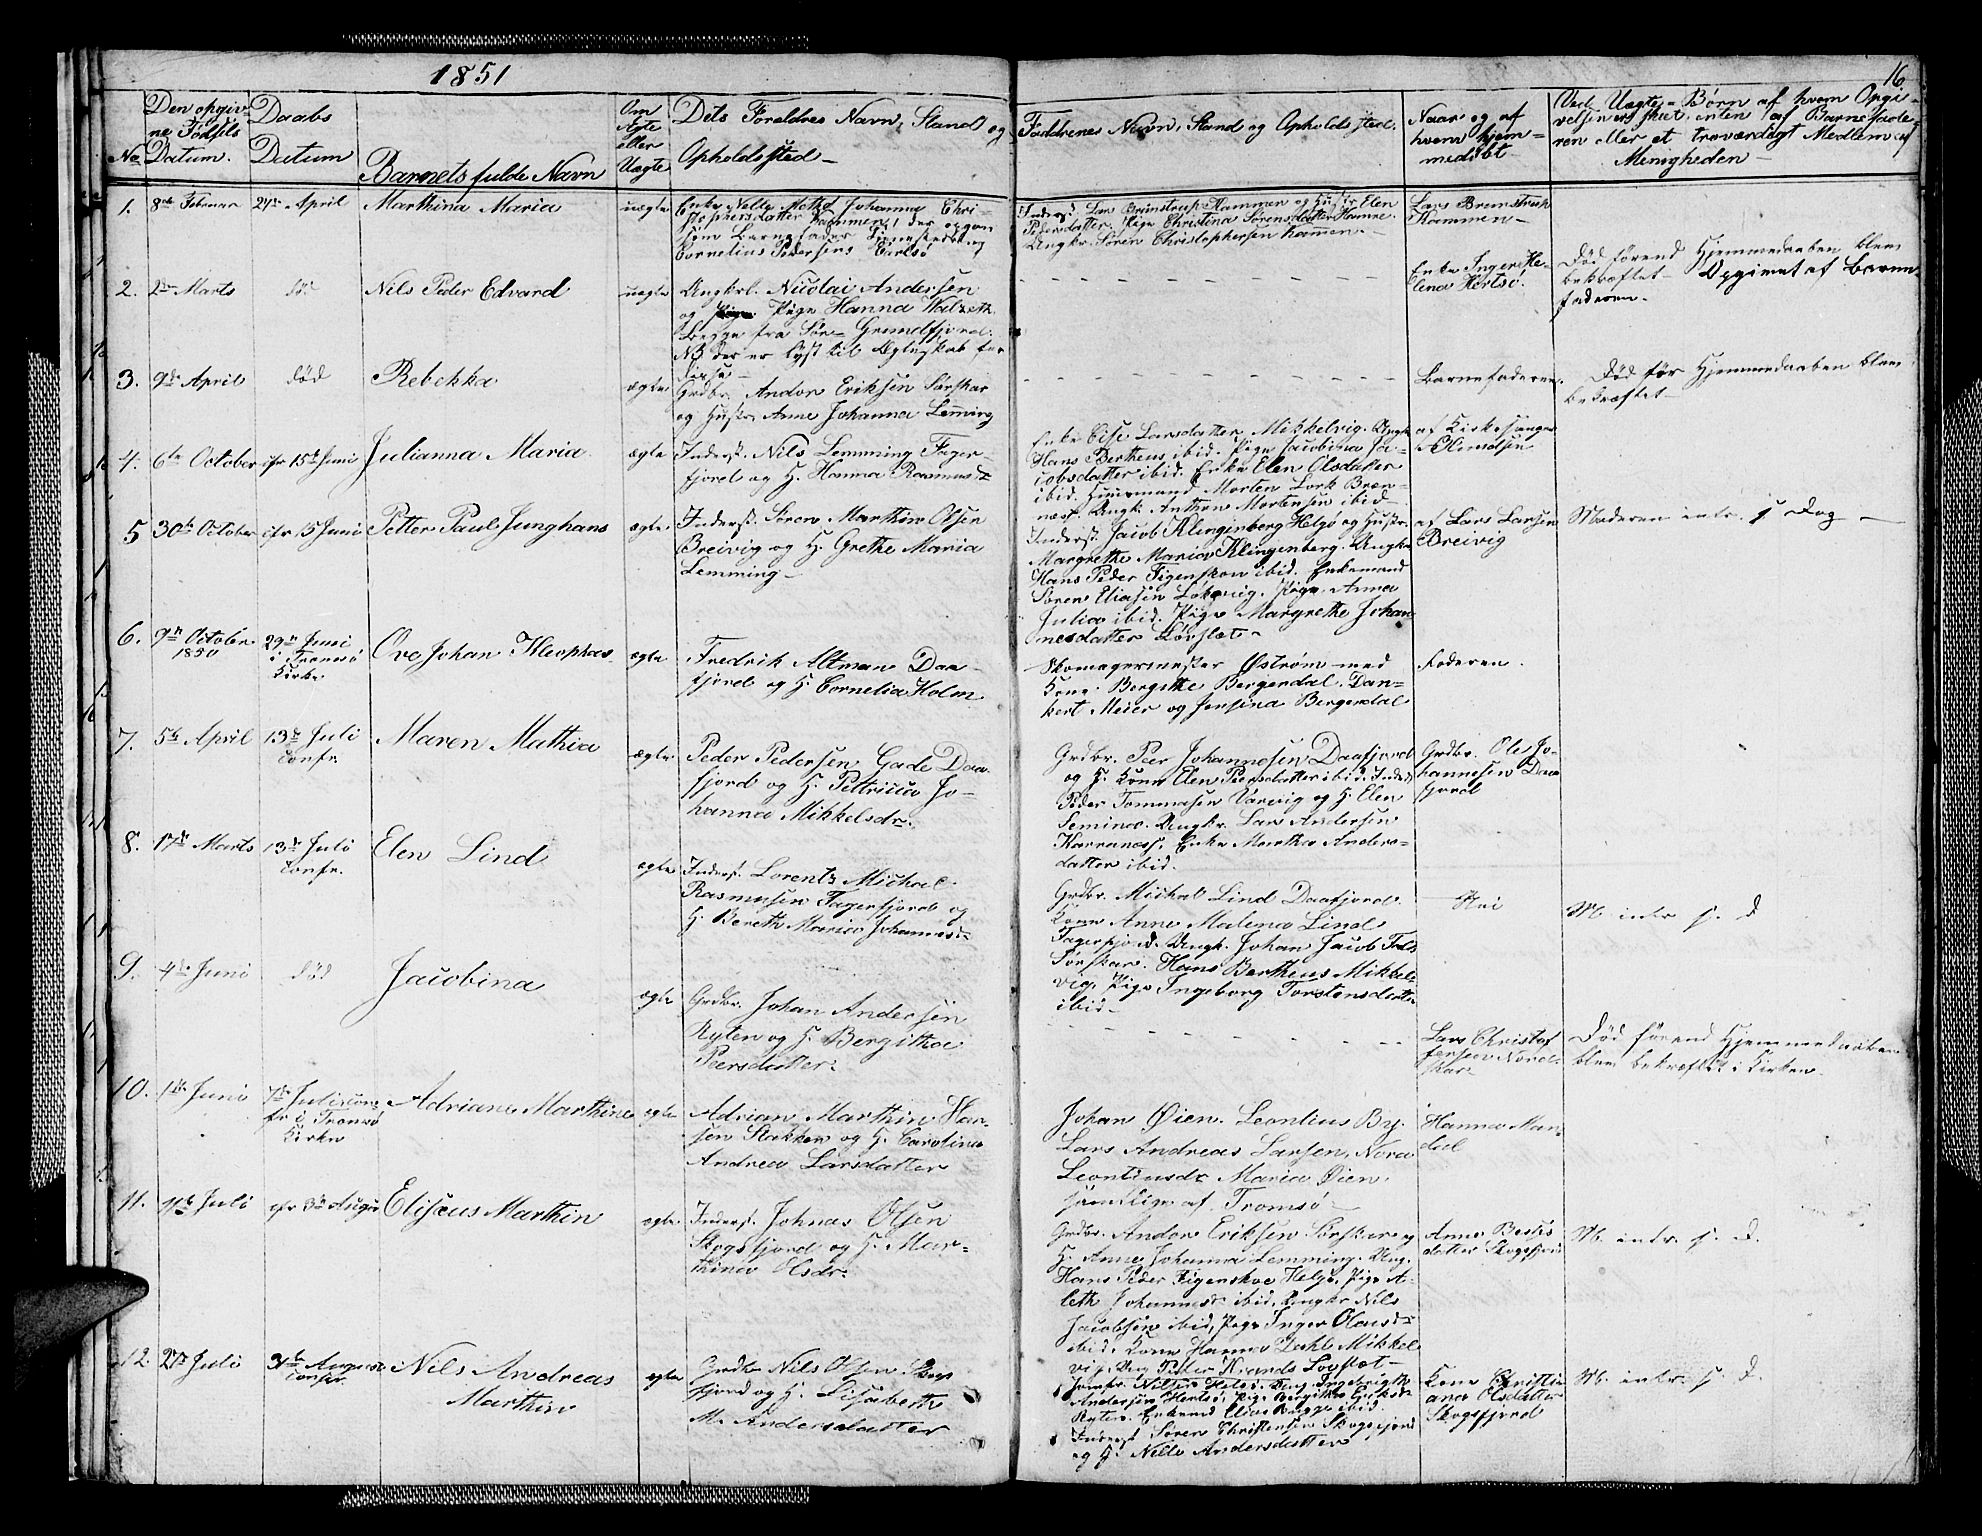 1851
16
No
Den opgiv-
ne Fødsels
Datum.
Daabs
Datum
Barnets fulde Navn
Om
Ægte
eller
Uægte
Dets Foreldres Navn, Stand og
Opholdssted
Faddrenes Navn, Stand og Opholdssted.
Naar og af
hvem hjem-
medøbt
Ved Uægte Børn af hvem Opgi-
velsen er skeet, enten af Barnefade-
ren eller et troværdigt Medlem af
Menigheden
1.
8de Februar
April
Marthina Maria
uægte
Enke Nelle Johanna Chri-
stophersdatter Hammen,
som Barnefader
Cornelius Pedersen
Hammen og Hustr Elen
Pedersdatter. Pige Christina Sørensdatter Hamme.
Ungkr. Søren Christophersen Hammen.
Lars
Hammen
2.
Marts
død
Nils Peder Edvard
uægte
Ungkrl. Nicolai Andersen
og Pige Hanna
Begge fra Grundfjord.
NB der er lyst til Ægteskab for
disse
Enke Inger He-
lena Hertsø.
Død førend Hjemmedaaben blev
bekræftet Opgivet af Barne
faderen.
3.
9de April
død
Rebekka
ægte
Grdbr. Andor Eriksen Sørskar
og Hustr. Anne Johanna Lemming
Barnefaderen.
Død før Hjemmedaaben blev
bekræftet
4.
6te October
cfr 15de Juni
Julianna Maria
ægte
Inderst. Nils Lemming Fager-
fjord og H. Hanna Rasmusdr
Enke Larsdatter Mikkelvig.
Hans Bertheus ibid. Pige Jacobina Ja-
cobsdatter ibid. Enke Elen Olsdatter
ibid. Morten Lork Bræn-
næs. Ungk. Anthon Mortensen ibid
af Kirkesanger
5
30te October
cfr 15 Juni
Petter Paul Junghans
ægte
Inderst. Søren Marthin Olsen
Breivig og H. Grethe Maria
Lemming
Inderst. Jacob Klingenberg Helgø og Hustr.
Margrethe Maria Klingenberg. Ungkr
Hans Peder Figenskou ibid. Enkemand
Søren Eliasen Løkvig. Pige Anna
Julia ibid. Pige Margrethe Johan
nesdatter Løvslet
af Lars Larsen
Breivig
Moderen intr. s. Dag
6.
October
1850
29de Juni
i Tromsø
Kirke
Ove Johan Kleophas
ægte
Fredrik Altman Daa-
fjord og H. Cornelia Holm
Skomagermester Østrøm med
Kone Bergitte Bergendal. Dan-
kert Meier og Jensina Bergendal
Faderen.
7.
5te April
13de Juli
confr.
Maren Mathia
ægte
Peder Pedersen Gade Daa
fjord og H. Pettricia Jo-
hanna Mikkelsdr.
Grdbr. Peer Johannesen Daafjord
og H. Kone Elen Peersdatter ibid. Inderst
Peder Tommasen Varvig og H. Elen
Semina. Ungkr. Lars Andersen
Karranæss. Enke Martha Anders-
datter ibid.
Grdbr. Ole Jo-
hannesen Daa
fjord
8.
17de Marts
13de Juli
confr.
Elen Lind
ægte
Inderst. Lorents Michael
Rasmussen Fagerfjord og
H. Bereth Maria Johannesdr
Grdbr. Michal Lind Daafjord.
Kone Anne Malena Lind
Fagerfjord. Ungk. Johan Jacob
Sørskar. Hans Bertheus Mikkel
vig. Pige Ingeborg Torstensdatter
ibid
Nei
M. intr. s. D
9.
4de Juni
død
Jacobina
ægte
Grdbr. Johan Andersen
Ryten og H. Bergitha
Peersdatter
Lars Christof
fersen Nord-
skar
Død førend Hjemmedaaben
blev bekræftet i Kirken.
10.
1ste Juni
7de Juli con-
fr i Tromsø
Kirke
Adriane Marthine
ægte
Adrian Marthin Han-
sen Stakken og H. Carolina
Andrea Larsdatter
Johan Øien. Leontius By.
Lars Andreas Larsen, Nora
Leontiusdr. Maria Øien,
samtlige af Tromsø
Hanna Man-
dal
11.
Juli
cfr 3die August
Elisæus Marthin
ægte
Inderst. Johnas Olsen
Skogsfjord og H. Mar-
thina Olsdr.
Grdbr. Andor Eriksen Sørskar og
H. Anne Johanna Lemming. Ung.
Hans Peder Figenskou Helgø, Pige A-
leth Johannesdr ibid, Ungkr Nils
Jacobsen ibid, Pige Inger Olausdr
ibid. Kone Hanna Dahl Mikkel
vig. Ung Petter Løvslæt
Anne
datter Skogsfjord
M. intr. s. D.
12.
Juli
August
confr.
Nils Andreas
Marthin
ægte
Grdbr Nils Olsen Skogs
fjord og H. Elisabeth
M. Andersdatter
Andersen Hertsø, Pige Bergitha Eriksdr
Ryten. Enkemd Elias Brygge ibid.
Inderst Søren Christensen Skogsfjord
og H. Nille Andersdatter
Kone Christi
ana Olsdatter
Skogsfjord
M. intr. s. D.